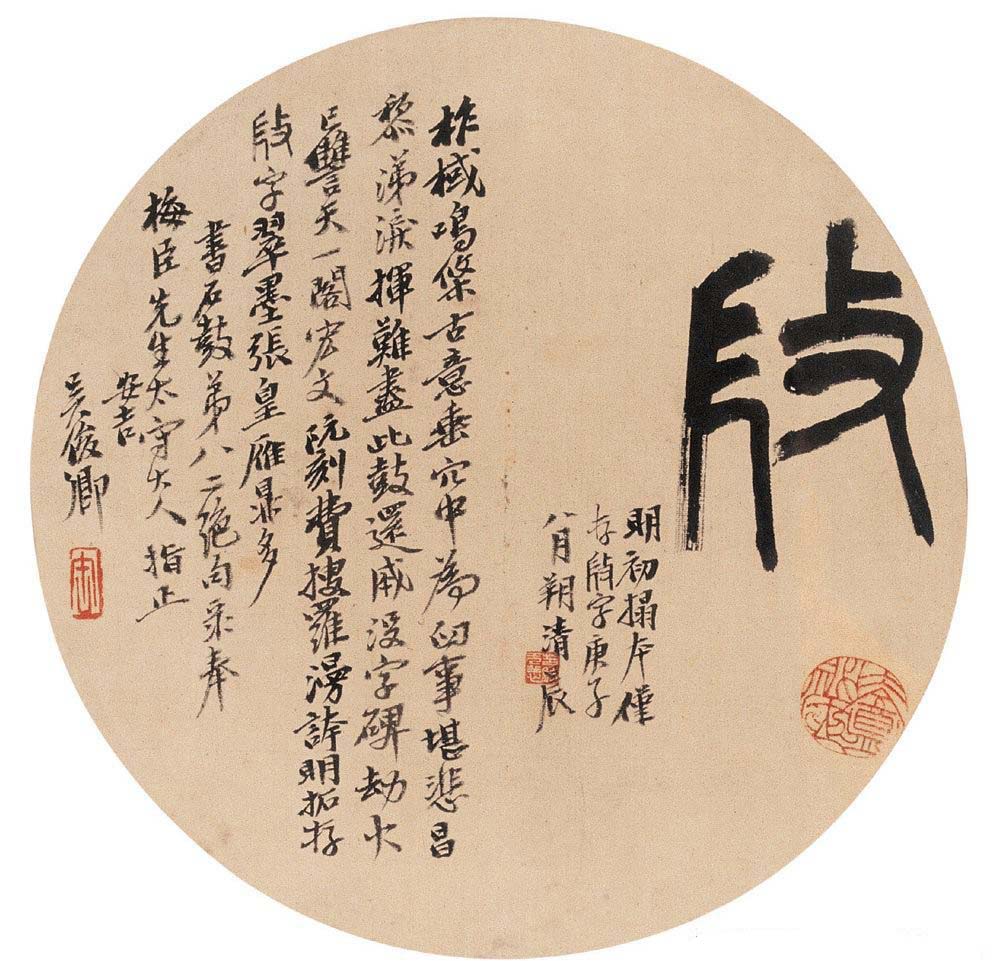 明初搨本僅
存字庚子
八月朔清晨
柞棫鳴條古意垂穴中為臼事堪悲昌
黎涕淚揮難盡此鼓還成沒字碑劫火
已讐天一閣宏文阮刻費搜羅漫誇明拓存
字翠墨張皇雁鼎多
書石鼓弟八二絕句录奉
梅臣先生太守大人指正
安吉
吳俊卿